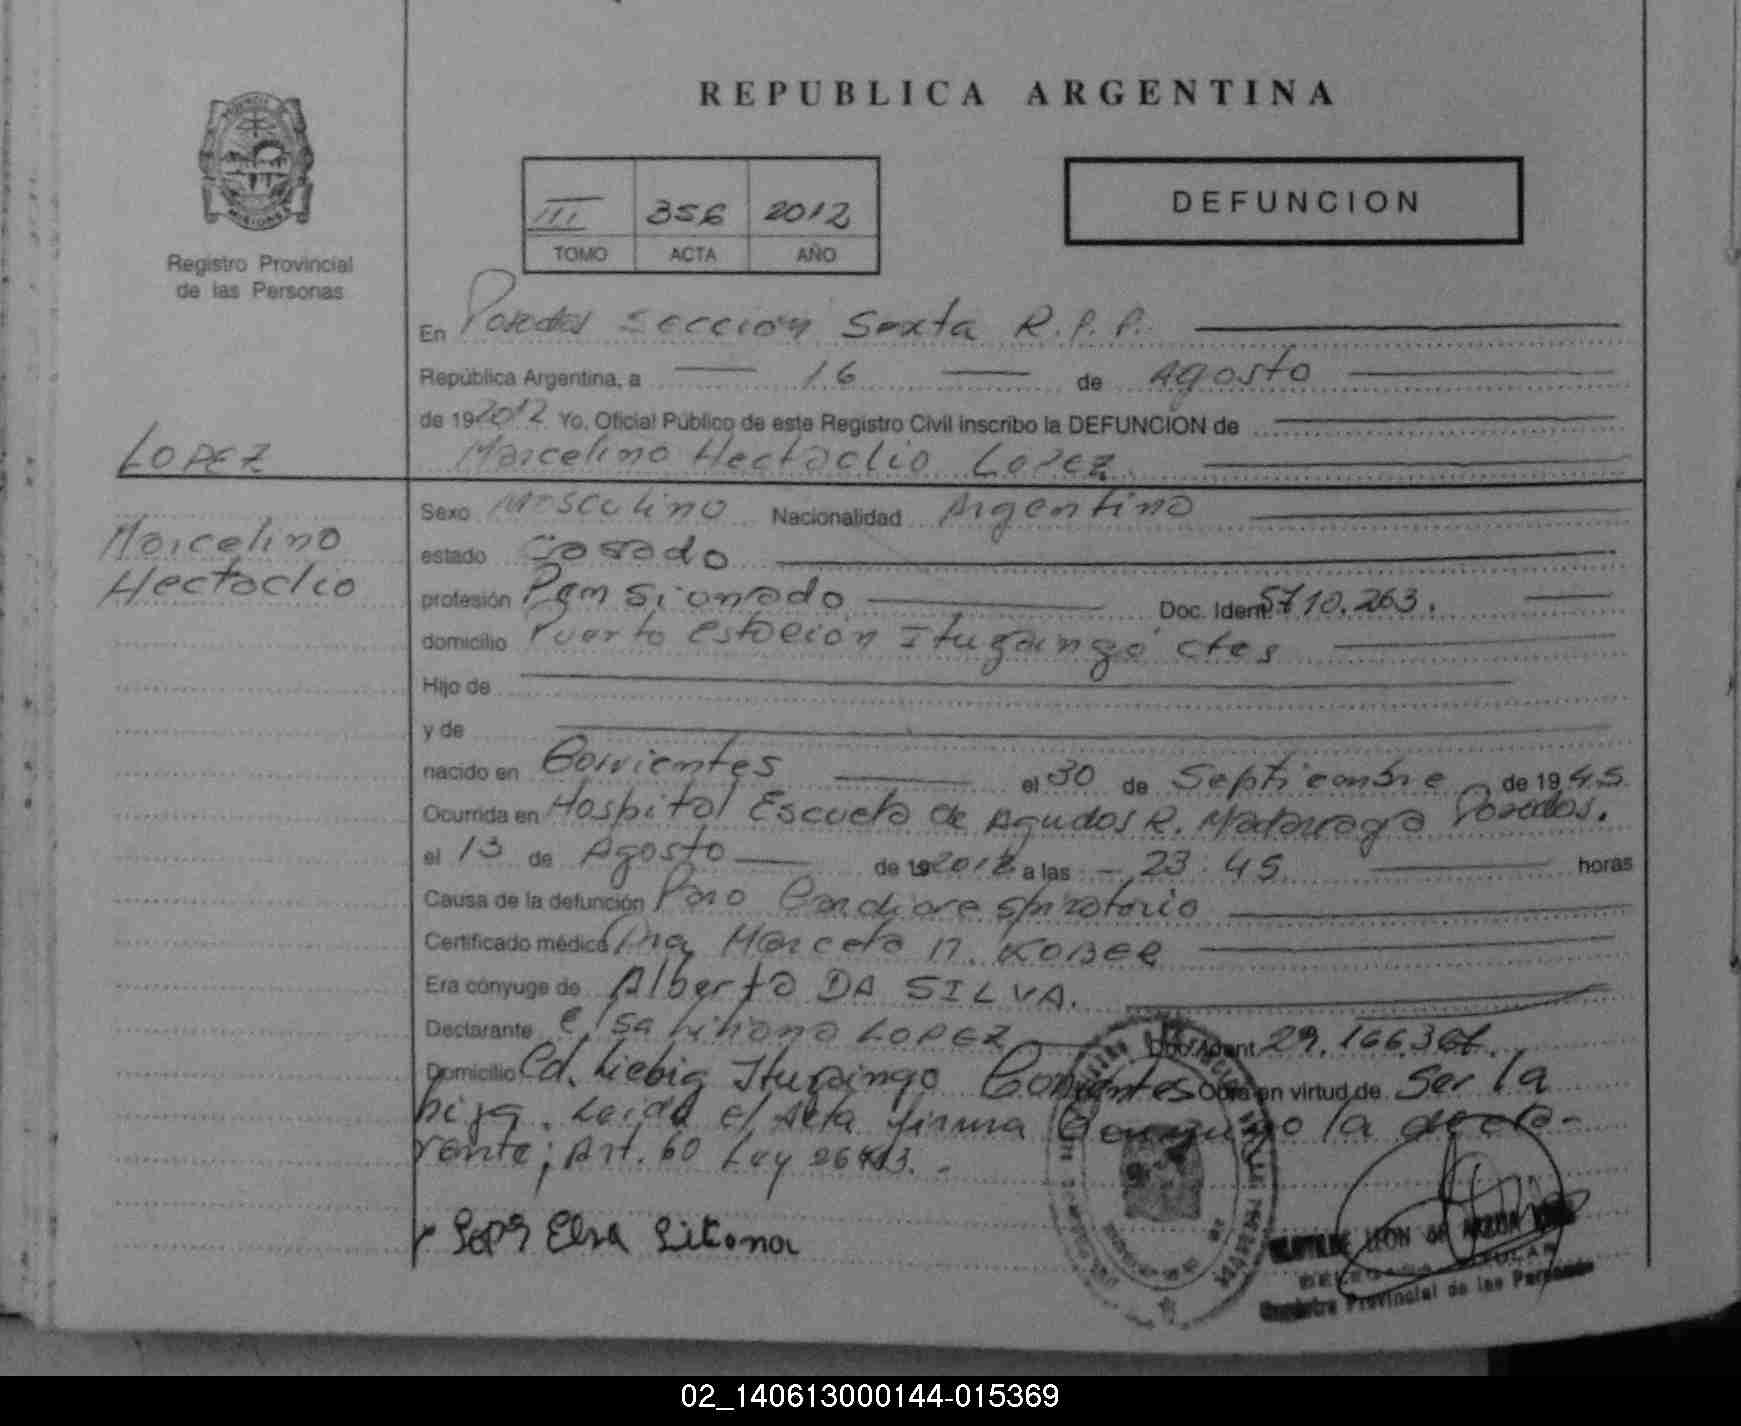 REPUBLICA ARGENTINA
DEFUNCION
III 356 2012
TOMO ACTA AÑO
Registro Provincial
de las Personas
MISIONES
LOPEZ
Marcelino
Hectaclio
En Posadas Sección Sexta R.P.P.
República Argentina, a 16 de Agosto
de 192012 Yo, Oficial Público de este Registro Civil inscribo la DEFUNCION de
Marcelino Hectaclio Lopez
Sexo Masculino Nacionalidad Argentina
estado Casado
profesión Pensionado Doc. Ident. 5710.263.
domicilio Puerto Estación Ituzaingó ctes
Hijo de
y de
nacido en Corrientes el 30 de Septiembre de 1945
Ocurrida en Hospital Escuela de Agudos R. Madariaga Posadas.
el 13 de Agosto de 192012 a las 23:45 horas
Causa de la defunción Paro Cardiorespiratorio
Certificado médico Dra Marcela N. KOBER
Era cónyuge de Alberta DA SILVA.
Declarante Elsa Liliana LOPEZ Doc. Ident. 29.166.
Domicilio Cd. Liebig Ituzaingo Corrientes Obra en virtud de Ser la
hija. Leída el Acta firma Conmigo la decla-
rante; Art. 60 Ley 26413.-
Elsa
LEON DE
Registro Provincial de las Personas
02_140613000144-015369